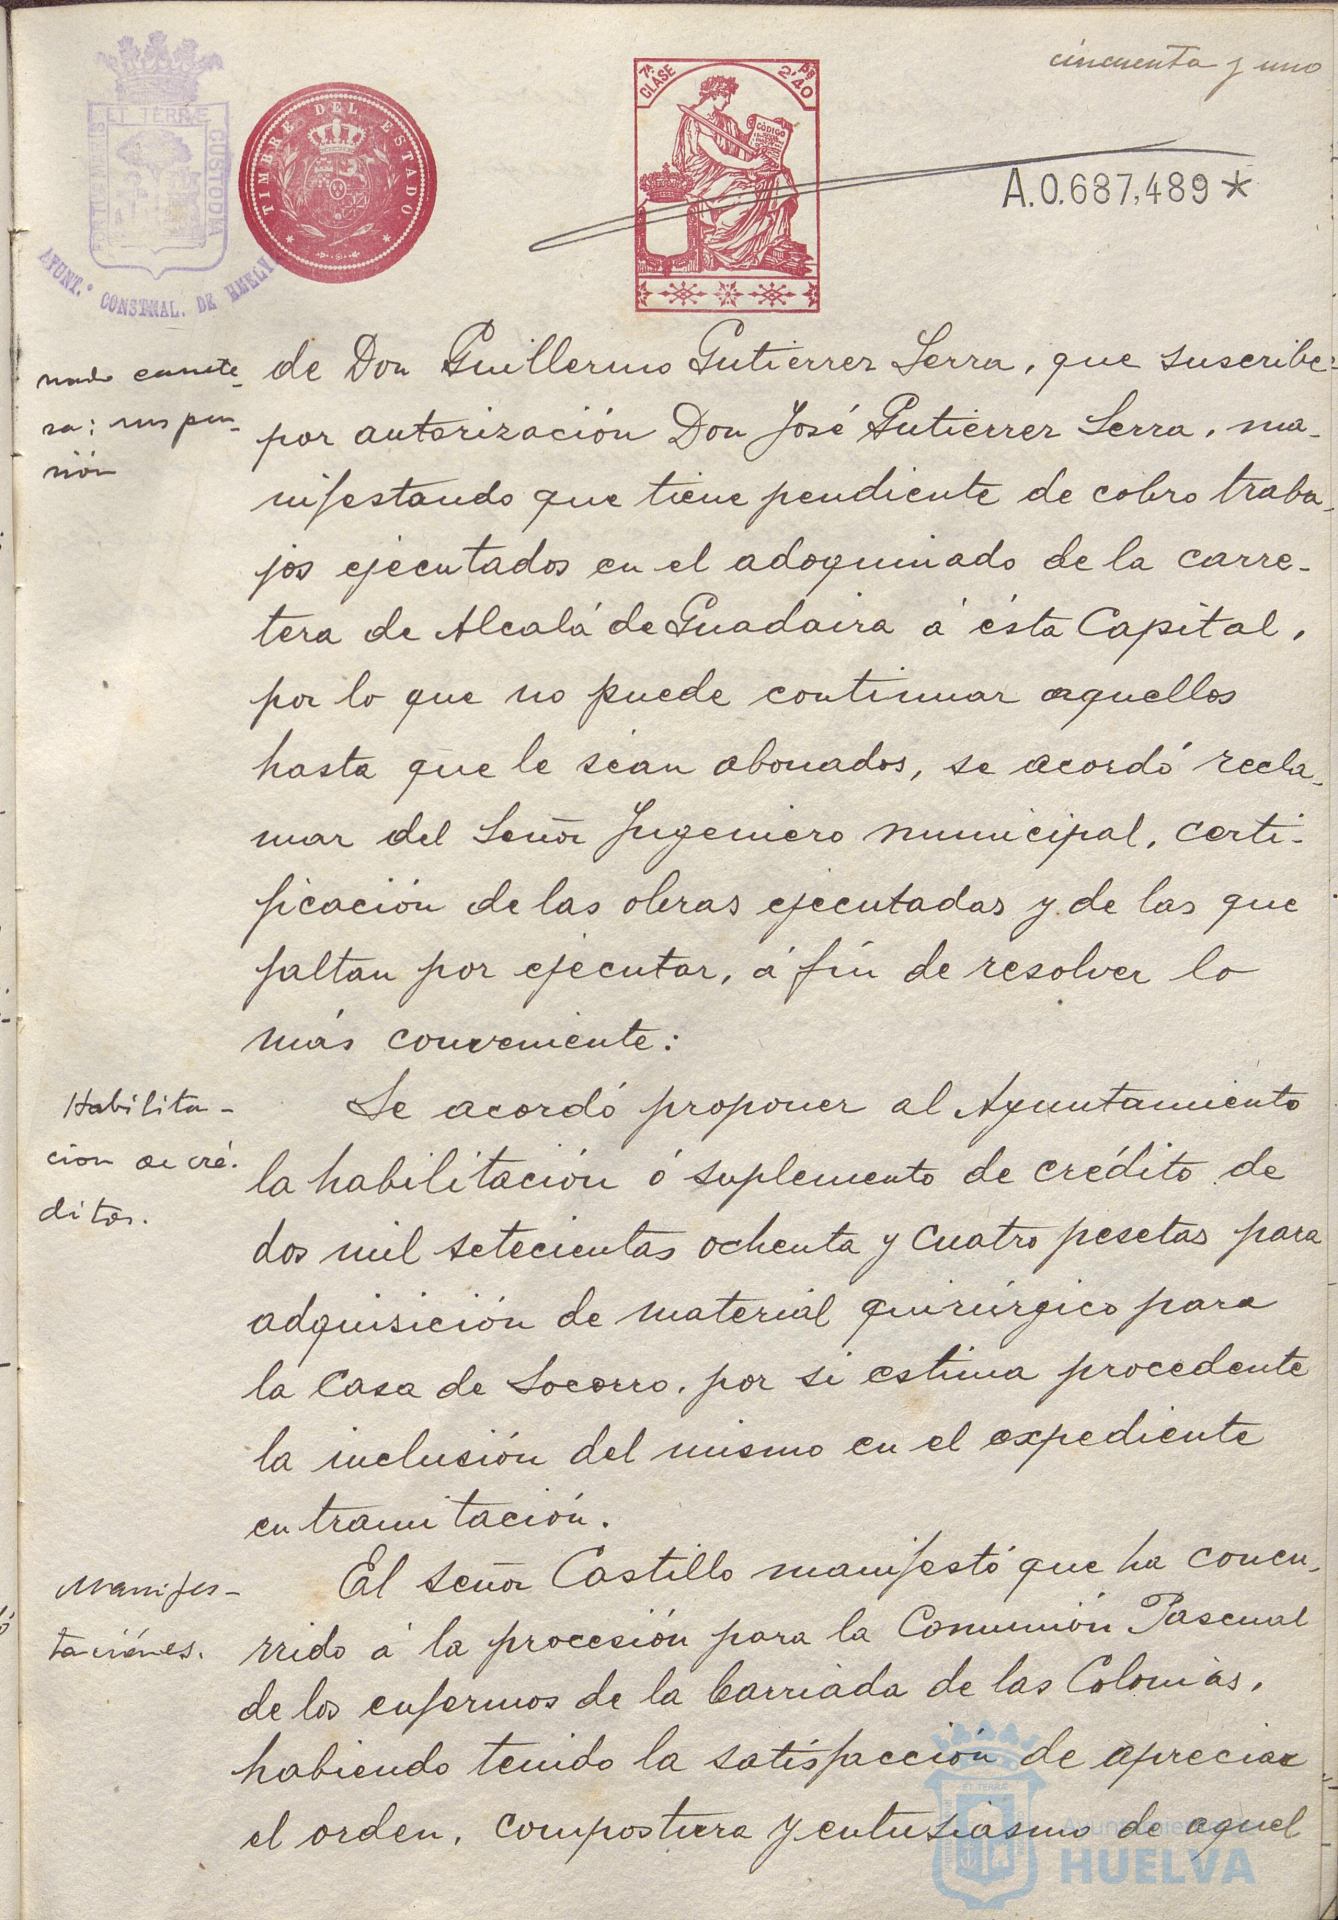 cincuenta y uno
PORTUS MARIS ET TERRÆ CUSTODIA
AYUNT.º CONSTNAL. DE HUELVA
TIMBRE DEL ESTADO
7ª CLASE
2'40 Pts
CÓDIGO
A.0.687,489*
nado carrete-
ra: suspen-
sión
de Don Guillermo Gutierrez Serra, que suscribe
por autorización Don José Gutierrez Serra, ma-
nifestando que tiene pendiente de cobro traba-
jos ejecutados en el adoquinado de la carre-
tera de Alcalá de Guadaira á ésta Capital,
por lo que no puede continuar aquellos
hasta que le sean abonados, se acordó recla-
mar del Señor Ingeniero municipal, certi-
ficación de las obras ejecutadas y de las que
faltan por ejecutar, á fín de resolver lo
más conveniente:
Habilita-
cion de cré-
ditos.
Se acordó proponer al Ayuntamiento
la habilitación ó suplemento de crédito de
dos mil setecientas ochenta y cuatro pesetas para
adquisición de material quirúrgico para
la Casa de Socorro, por si estima procedente
la inclusión del mismo en el expediente
en tramitación.
Manifes-
taciónes.
El señor Castillo manifestó que ha concu-
rrido á la procesión para la Comunión Pascual
de los enfermos de la barriada de las Colonias,
habiendo tenido la satisfacción de apreciar
el orden, compostura y entusiasmo de aquel
Ayuntamiento de
HUELVA